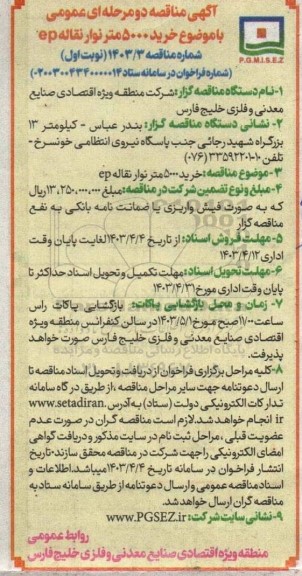 آگهی مناقصه دو مرحله ای عمومی
با موضوع خرید ۵۰۰۰متر نوار نقاله ep
P.G.M.I.S.E.Z
شماره مناقصه ۱۴۰۳/۳ (نوبت اول)
(شماره فراخوان در سامانه ستاد ۰۲۰۰۳۰۰۴۳۴۰۰۰۰۱۴)
۱-نام دستگاه مناقصه گزار: شرکت منطقه ویژه اقتصادی صنایع
معدنی و فلزی خلیج فارس
۲- نشانی دستگاه مناقصه گزار: بندر عباس - کیلومتر ۱۳
بزرگراه شهید رجائی جنب پاسگاه نیروی انتظامی خونسرخ -
تلفن ۱۰-۳۳۵۹۲۲۰۱ (۰۷۶)
۳-موضوع مناقصه: خرید ۵۰۰۰متر نوار نقاله ep
۴-مبلغ و نوع تضمین شرکت در مناقصه: مبلغ ۱۳,۲۵۰,۰۰۰,۰۰۰ریال
که به صورت فیش واریزی یا ضمانت نامه بانکی به نفع
مناقصه گزار
۵-مهلت فروش اسناد: از تاریخ ۱۴۰۳/۴/۴ لغایت پایان وقت
اداری ۱۴۰۳/۴/۱۲
۶-مهلت تحویل اسناد: مهلت تکمیل و تحویل اسناد حداکثر تا
پایان وقت اداری مورخ ۱۴۰۳/۴/۳۱
۷- زمان و محل بازگشایی پاکات: بازگشایی پاکات راس
ساعت ۱۱/۰۰صبح مورخ ۱۴۰۳/۵/۱ در سالن کنفرانس منطقه ویژه
اقتصادی صنایع معدنی و فلزی خلیج فارس صورت خواهد
پذیرفت.
۸-کلیه مراحل برگزاری فراخوان از دریافت و تحویل اسناد مناقصه تا
ارسال دعوتنامه جهت سایر مراحل مناقصه ،از طریق در گاه سامانه
تدارکات الکترونیکی دولت (ستاد) به آدرس .www.setadiran
ir انجام خواهد شد.لازم است مناقصه گران در صورت عدم
عضویت قبلی ،مراحل ثبت نام در سایت مذکور و دریافت گواهی
امضای الکترونیکی را جهت شرکت در مناقصه محقق سازند.تاریخ
انتشار فراخوان در سامانه تاریخ ۱۴۰۳/۴/۴ میباشد.اطلاعات و
اسناد مناقصه عمومی و ارسال دعوتنامه از طریق سامانه ستاد به
مناقصه گران ارسال خواهد شد.
۹-نشانی سایت شرکت: www.PGSEZ.ir
روابط عمومی
منطقه ویژه اقتصادی صنایع معدنی و فلزی خلیج فارس